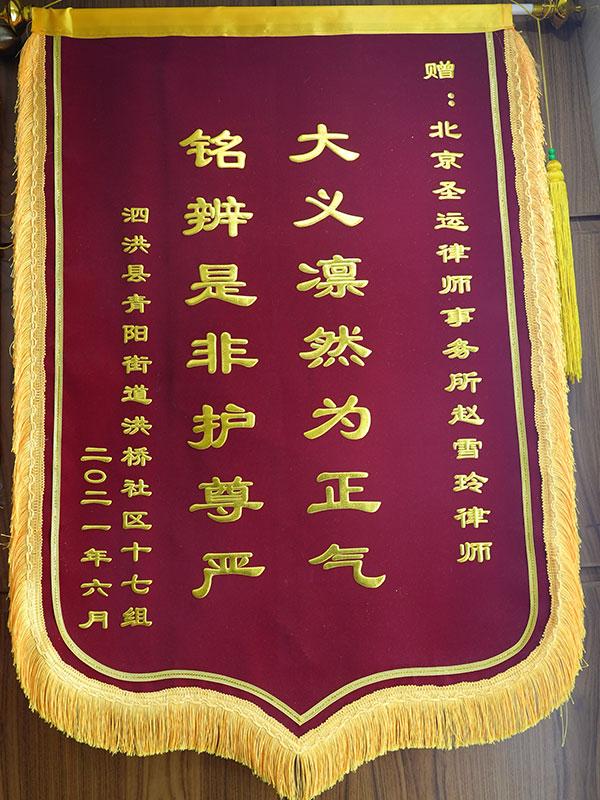 赠：北京圣运律师事务所赵雪玲律师
大义凛然为正气
铭辨是非护尊严
泗洪县青阳街道洪桥社区十七组
二〇二一年六月